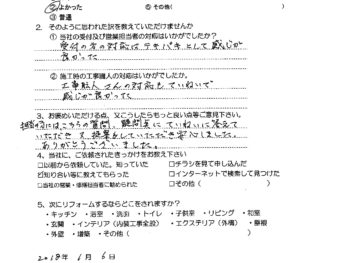 ②よかった ⑤その他(
③普通
2. そのように思われた訳を教えていただけませんか
① 当社の受付及び営業担当者の対応はいかがでしたか?
受付の方の対応はテキパキとして感じが
良かった
② 施工時の工事職人の対応はいかがでしたか?
工事職人さんの対応もていねいで
感じが良かった
3. お褒めいただける点、又こうしたらもっと良い点等ご意見下さい。
こちらの質問、疑問点にていねいに答えて
いただき、提案をしていただき安心しました。
ありがとうございました。
4. 当社に、ご依頼されたきっかけをお教え下さい
□以前から依頼していた、知っていた □チラシを見て申し込んだ
☑知り合い等に教えてもらった □インターネットで検索して見つけた
□当社の営業・修繕担当者に勧められた □その他(
5. 次にリフォームするならどこをされますか?
・キッチン ・浴室 ・洗面 ・トイレ ・子供室 ・リビング ・和室
・玄関 ・インテリア(内装工事全般) ・エクステリア(外構) ・屋根
・外壁 ・増築 ・その他(
2018年 6月 6日